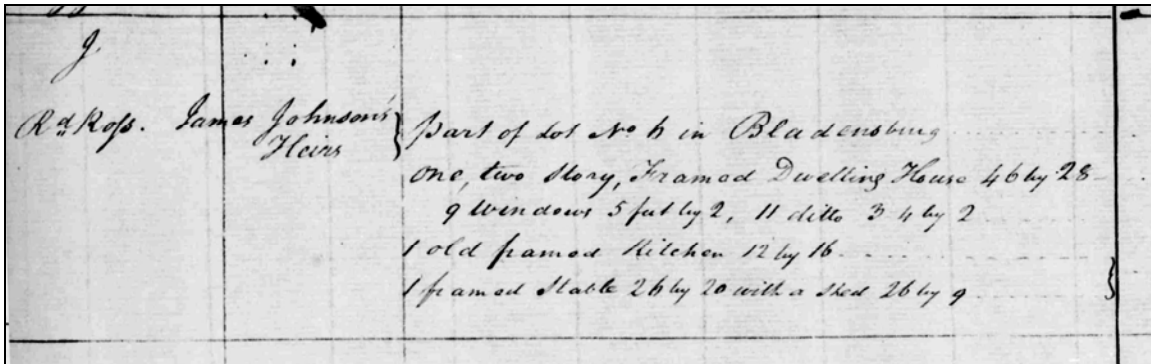 J.
Rd. Ross. James Johnson's Heirs } part of Lot No 6 in Bladensburg
one, two story, Framed Dwelling House 46 by 28
9 Windows 5 feet by 2, 11 ditto 3 4 by 2
1 old framed Kitchen 12 by 16
1 framed Stable 26 by 20 with a shed 26 by 9 }